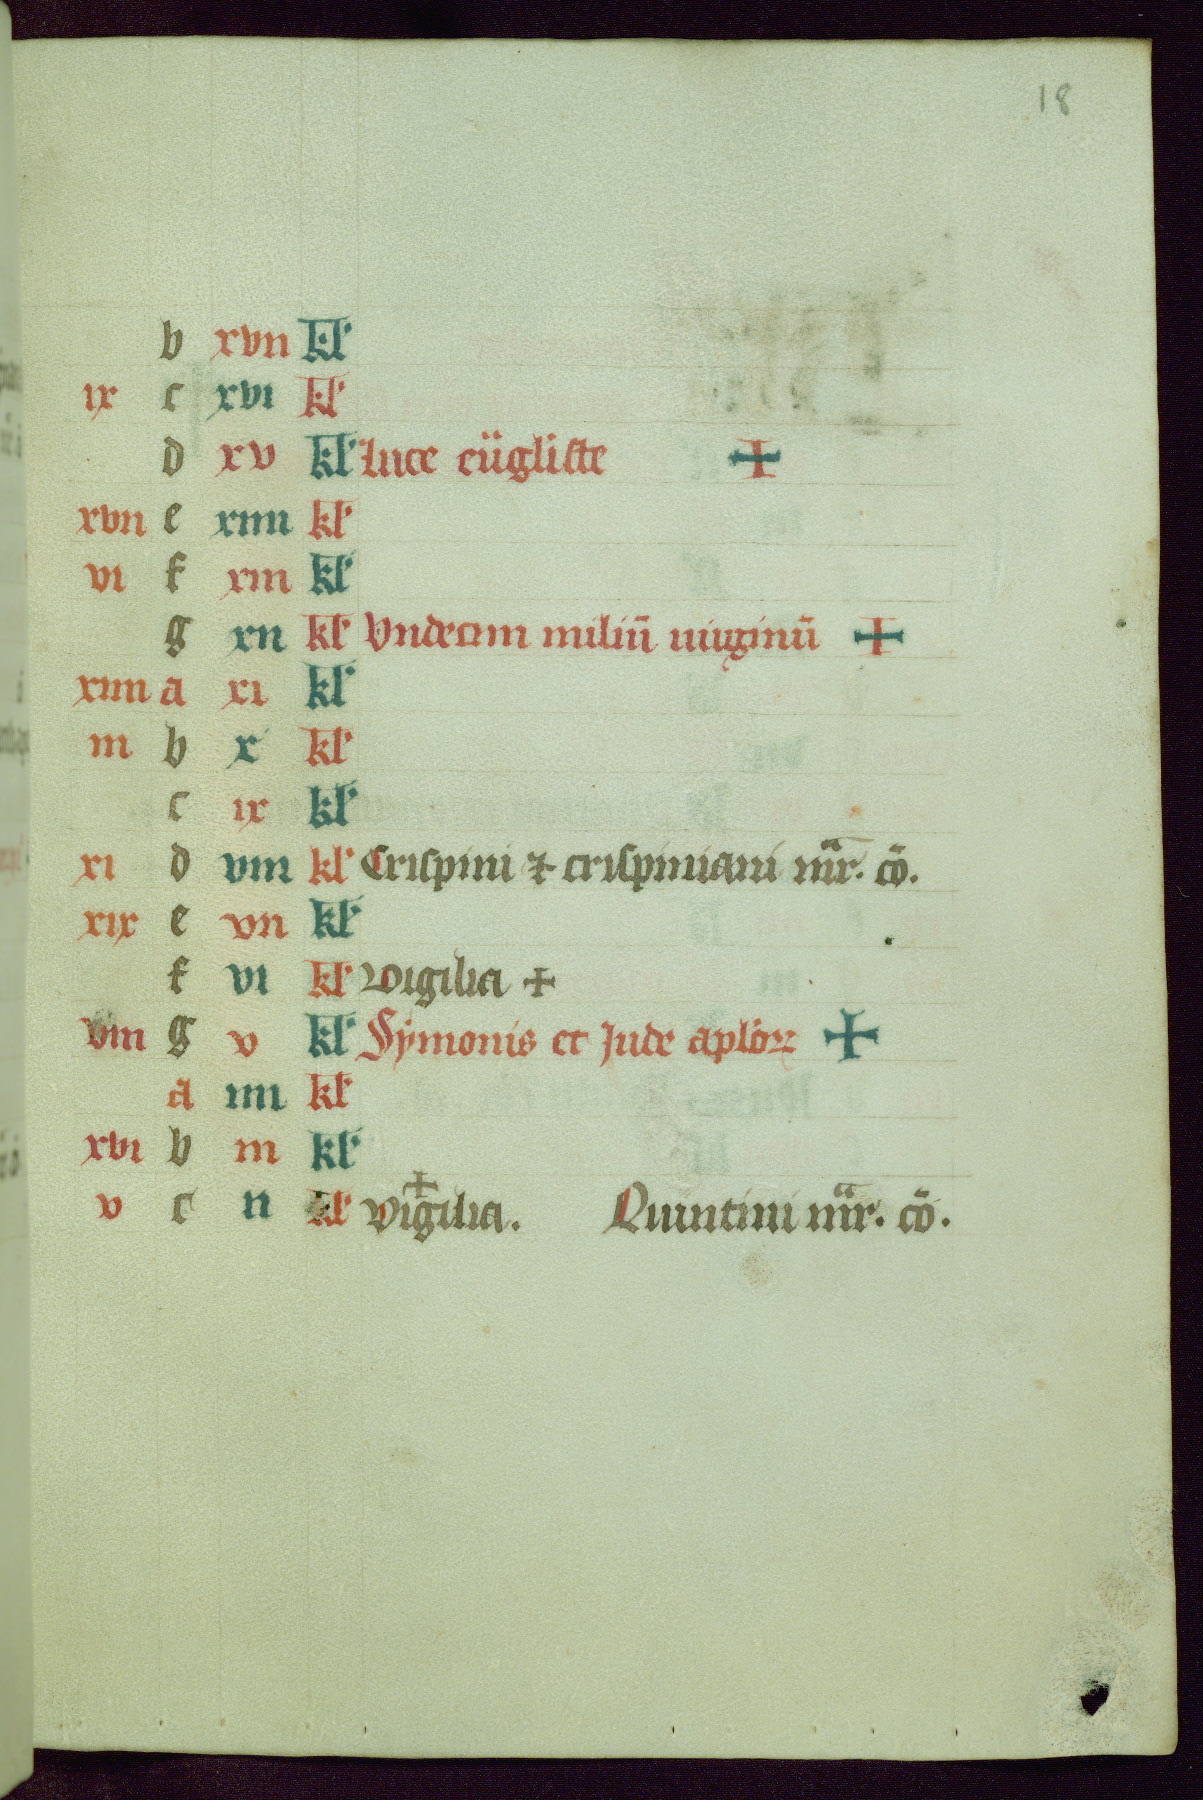 18
b xvii kl'
ix c xvi kl'
d xv kl' Luce eu̅gliste +
xvii e xiiii kl'
vi f xiii kl'
g xii kl' Vndecim miliu̅ uirginu̅ +
xiiii a xi kl'
iii b x kl'
c ix kl'
xi d viii kl' Crispini ⁊ crispiniani mr̅. co̅.
xix e vii kl'
f vi kl' Vigilia +
viii g v kl' Symonis et Jude aplo̅ꝝ +
a iiii kl'
xvi b iii kl'
v c ii kl' Vigilia. + Quintini mr̅. co̅.